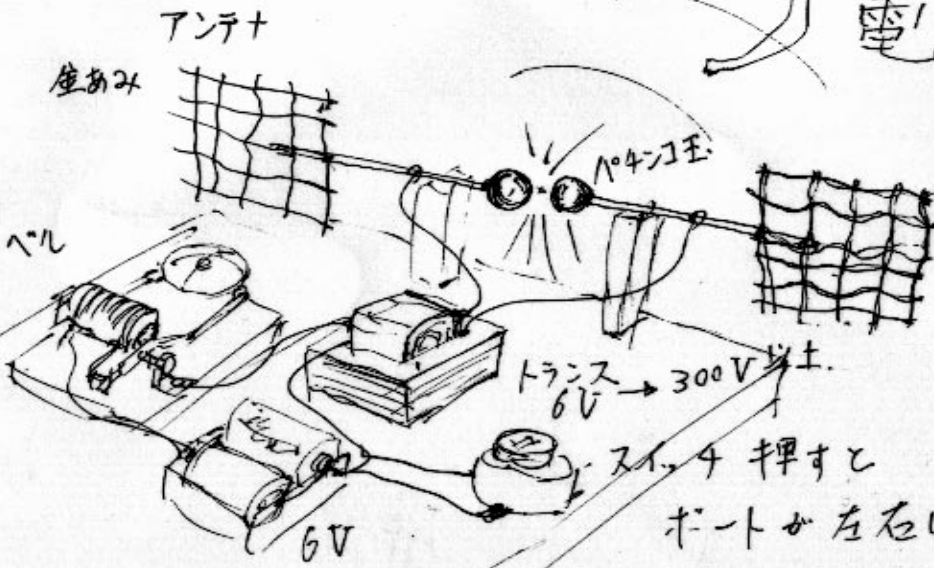 アンテナ
電
金あみ
パチンコ玉
ベル
トランス
6V → 300V 以上.
スイッチ 押すと
ボートが左右に
6V